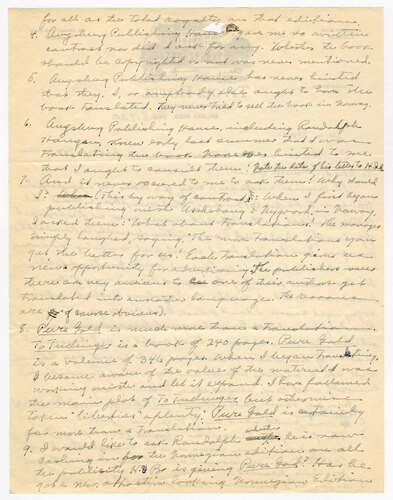 for all as the total royalty on that edition.
4. Augsburg Publishing House gave me no written
contract nor did I ask for any. Whether the book
should be copyrighted or not was never mentioned.
5. Augsburg Publishing House has never hinted
that they, I, or anybody else ought to have the
book translated. They never tried to sell the book in Norway.
6. Augsburg Publishing House, including Randolph
Haugan, knew only last summer that I was
translating the book. None ever hinted to me
that I ought to consult them! Note the dates of his letters to
7. And it never occurred to me to ask them! Why should
I? (This by way of contrast): When I first began
publishing with Aschehoug & Nygaard, in Norway,
I asked them: "What about translations?" The manager
simply laughed, saying: The more translations you
get, the better for us! Each translation gives us
new opportunity for advertising. The publishers over
there are very anxious to have one of their authors get
translated into another language. The reasons
are of course obvious).
8. Pure Gold is much more than a translation.
To Tullinger is a book of 240 pages. Pure Gold
is a volume of 346 pages. When I began translating,
I became aware of the value of the material I was
working with and let it expand. I have followed
the main plot of To Tullinger but otherwise
taken "liberties" aplenty; Pure Gold is entirely
far more than a translation.
9. I would like to ask Randolph whether he is now
cashing in for the Norwegian edition on all
the publicity H. & Br. is giving Pure Gold? Has he
got a new attractive looking Norwegian Edition